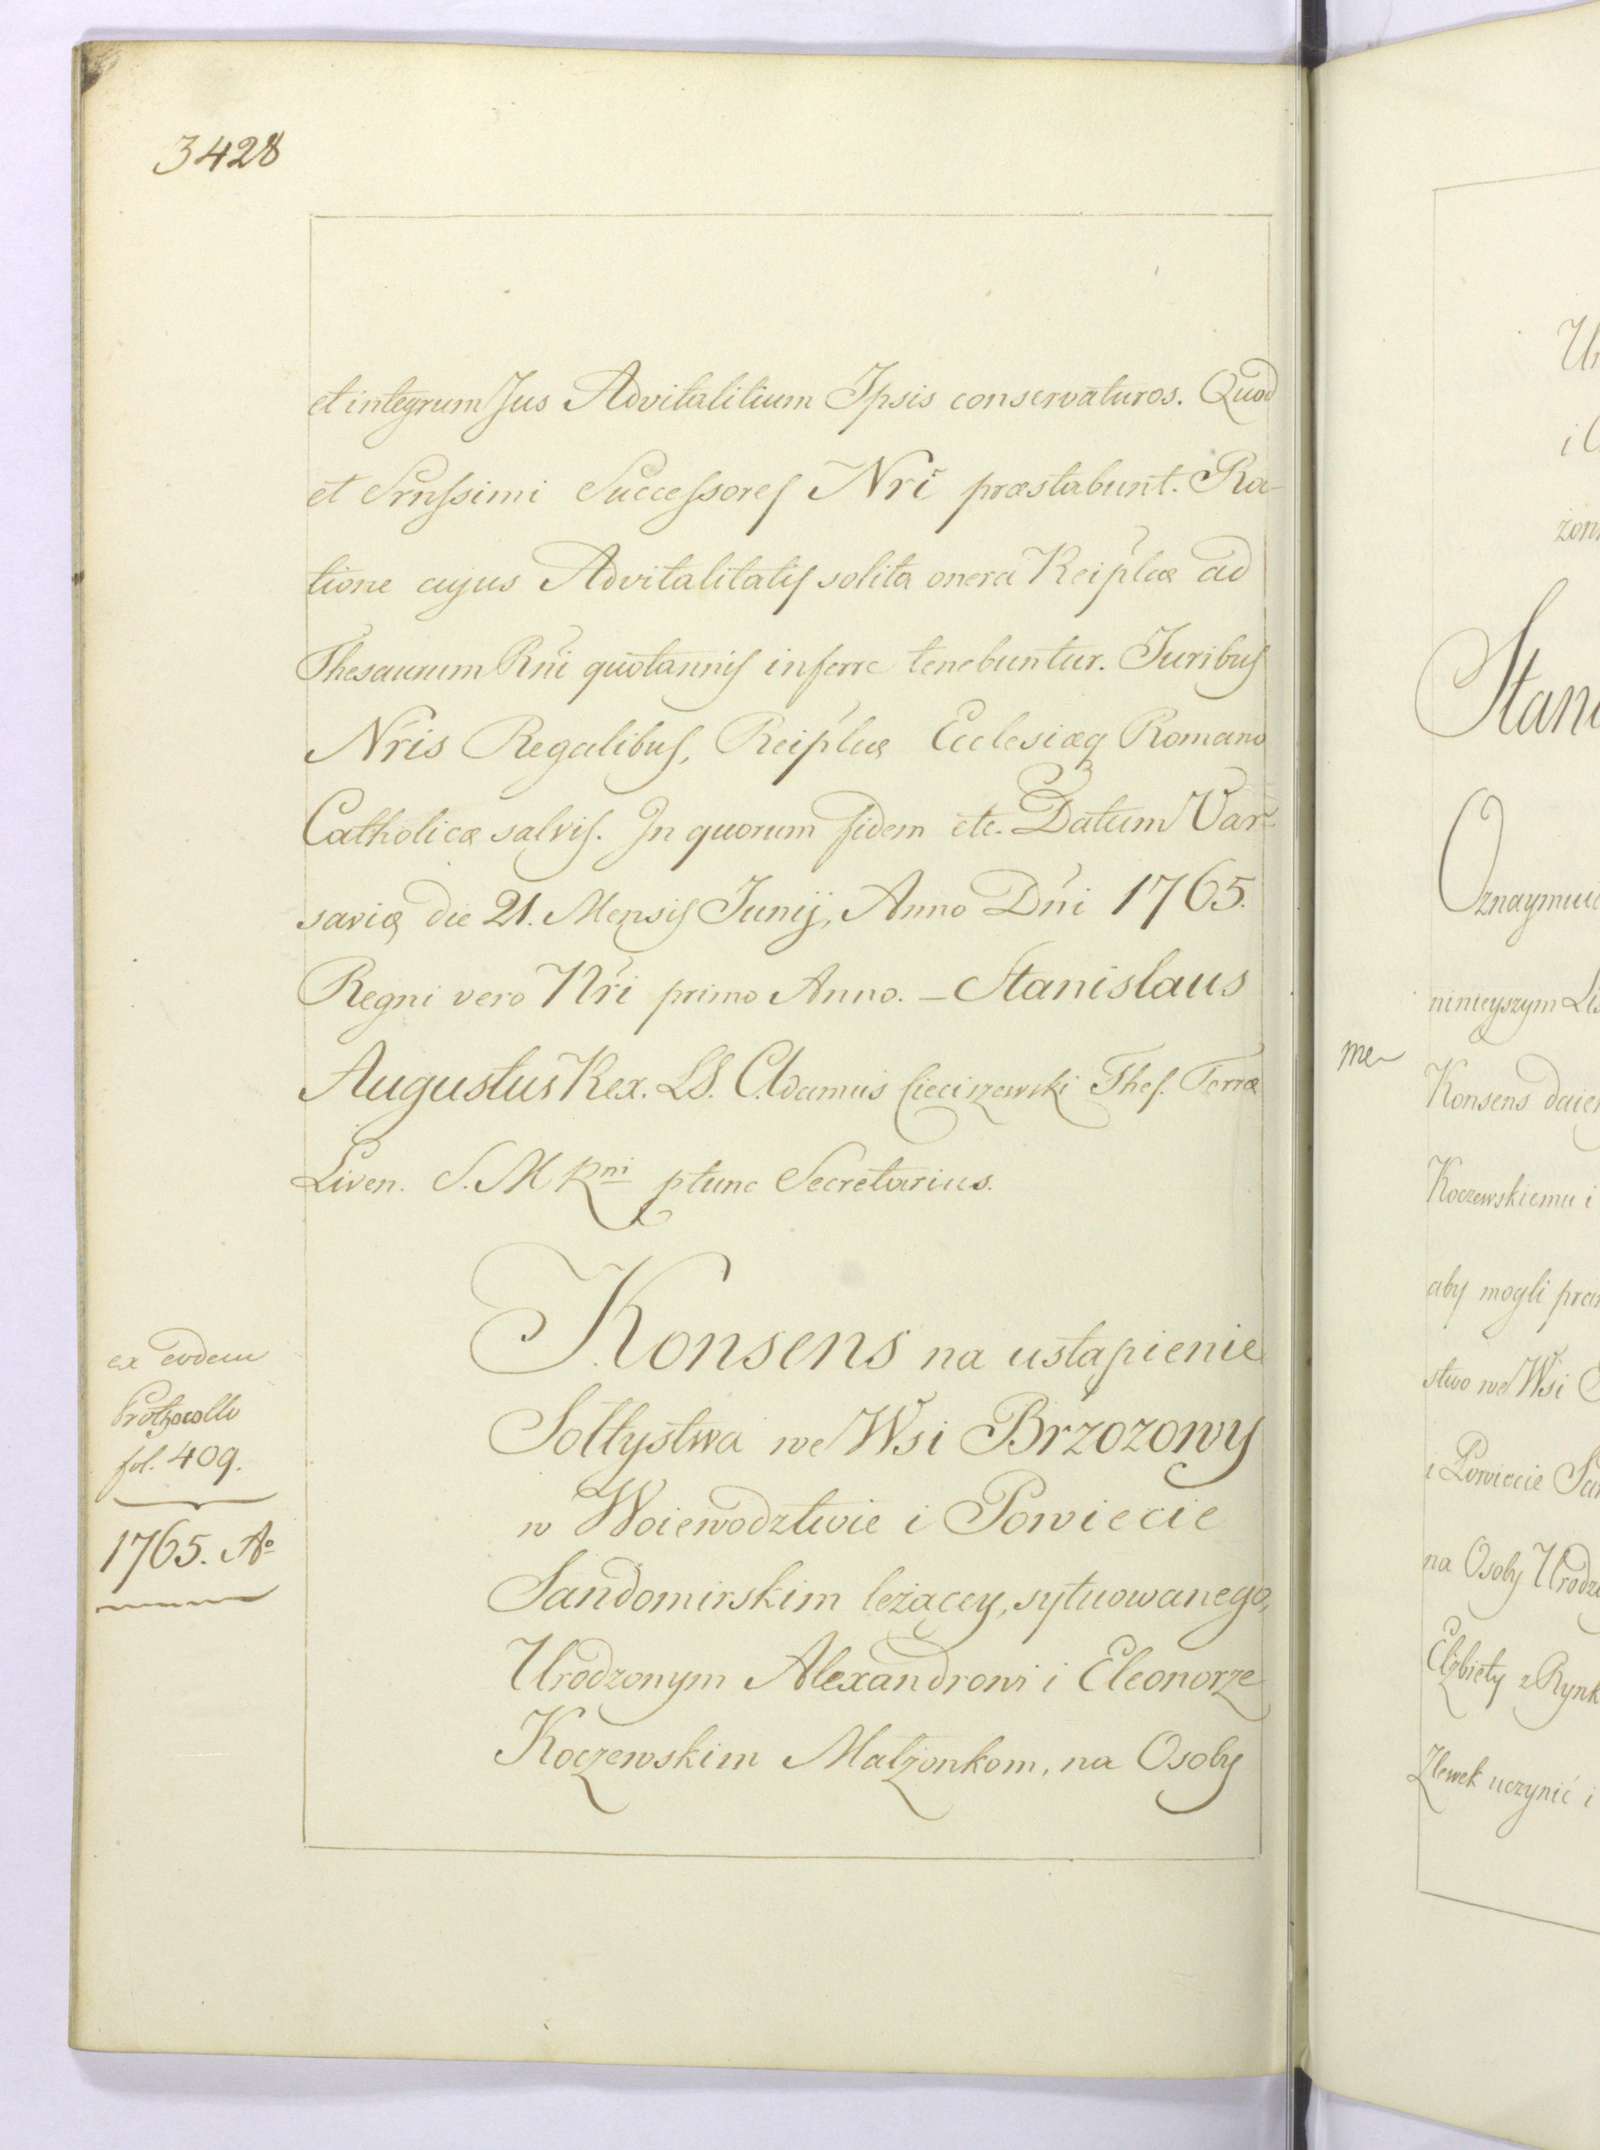 3428
et integrum Jus Advitalitium Ipsis conservaturos. Quod
et Srnssimi Successores Nri præstabunt. Ra-
tione cujus Advitalitatis solita onera Reiplcæ ad
Thesaurum Rni quotannis inferre tenebuntur. Juribus
Nris Regalibus, Reiplcæ Ecclesiæq Romano
Catholicæ salvis. In quorum fidem etc. Datum Var-
saviæ die 21. Mensis Junij, Anno Dni 1765.
Regni vero Nri primo Anno. – Stanislaus
Augustus Rex. LS. Adamus Cieciszewski Thes. Terræ
Liven. S. M Rni ptunc Secretarius.
ex eodem
Prothocollo
fol. 409.
1765. Aº
Konsens na ustąpienie
Sołtystwa we Wsi Brzozowy
w Woiewodztwie i Powiecie
Sandomirskim leżącey, sytuowanego,
Urodzonym Alexandrowi i Eleonorze
Koczewskim Małżonkom, na Osoby
Ur
i
żon
Stani
Oznaymuie
ninieyszym Lis
me
Konsens daie
Koczewskiemu i
aby mogli pra
stwo we Wsi
i Powiecie San
na Osoby Urodzo
Elżbiety z Rynk
Zlewek uczynić i